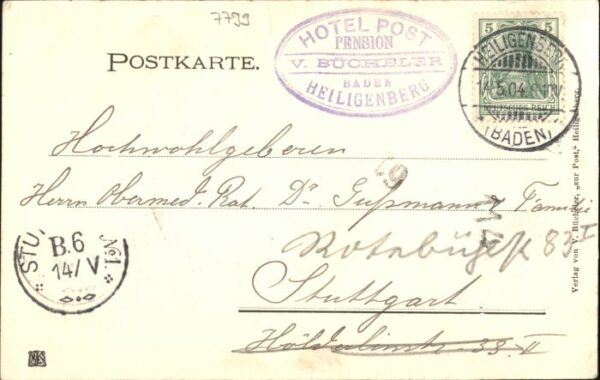 7799
HOTEL POST
PENSION
V. BÜCHELER
BADEN
HEILIGENBERG
5 5
HEILIGENBERG
5.04.
DEUTSCHES REICH
(BADEN)
POSTKARTE.
Hochwohlgeboren
Herrn Obermed. Rat. Dr. Gußmann Familie
83 I
Stuttgart
Hölderlinstr. 38. II
STU
B.6
14/V
No1.
Verlag von V. Bücheler, „zur Post," Heiligenberg.